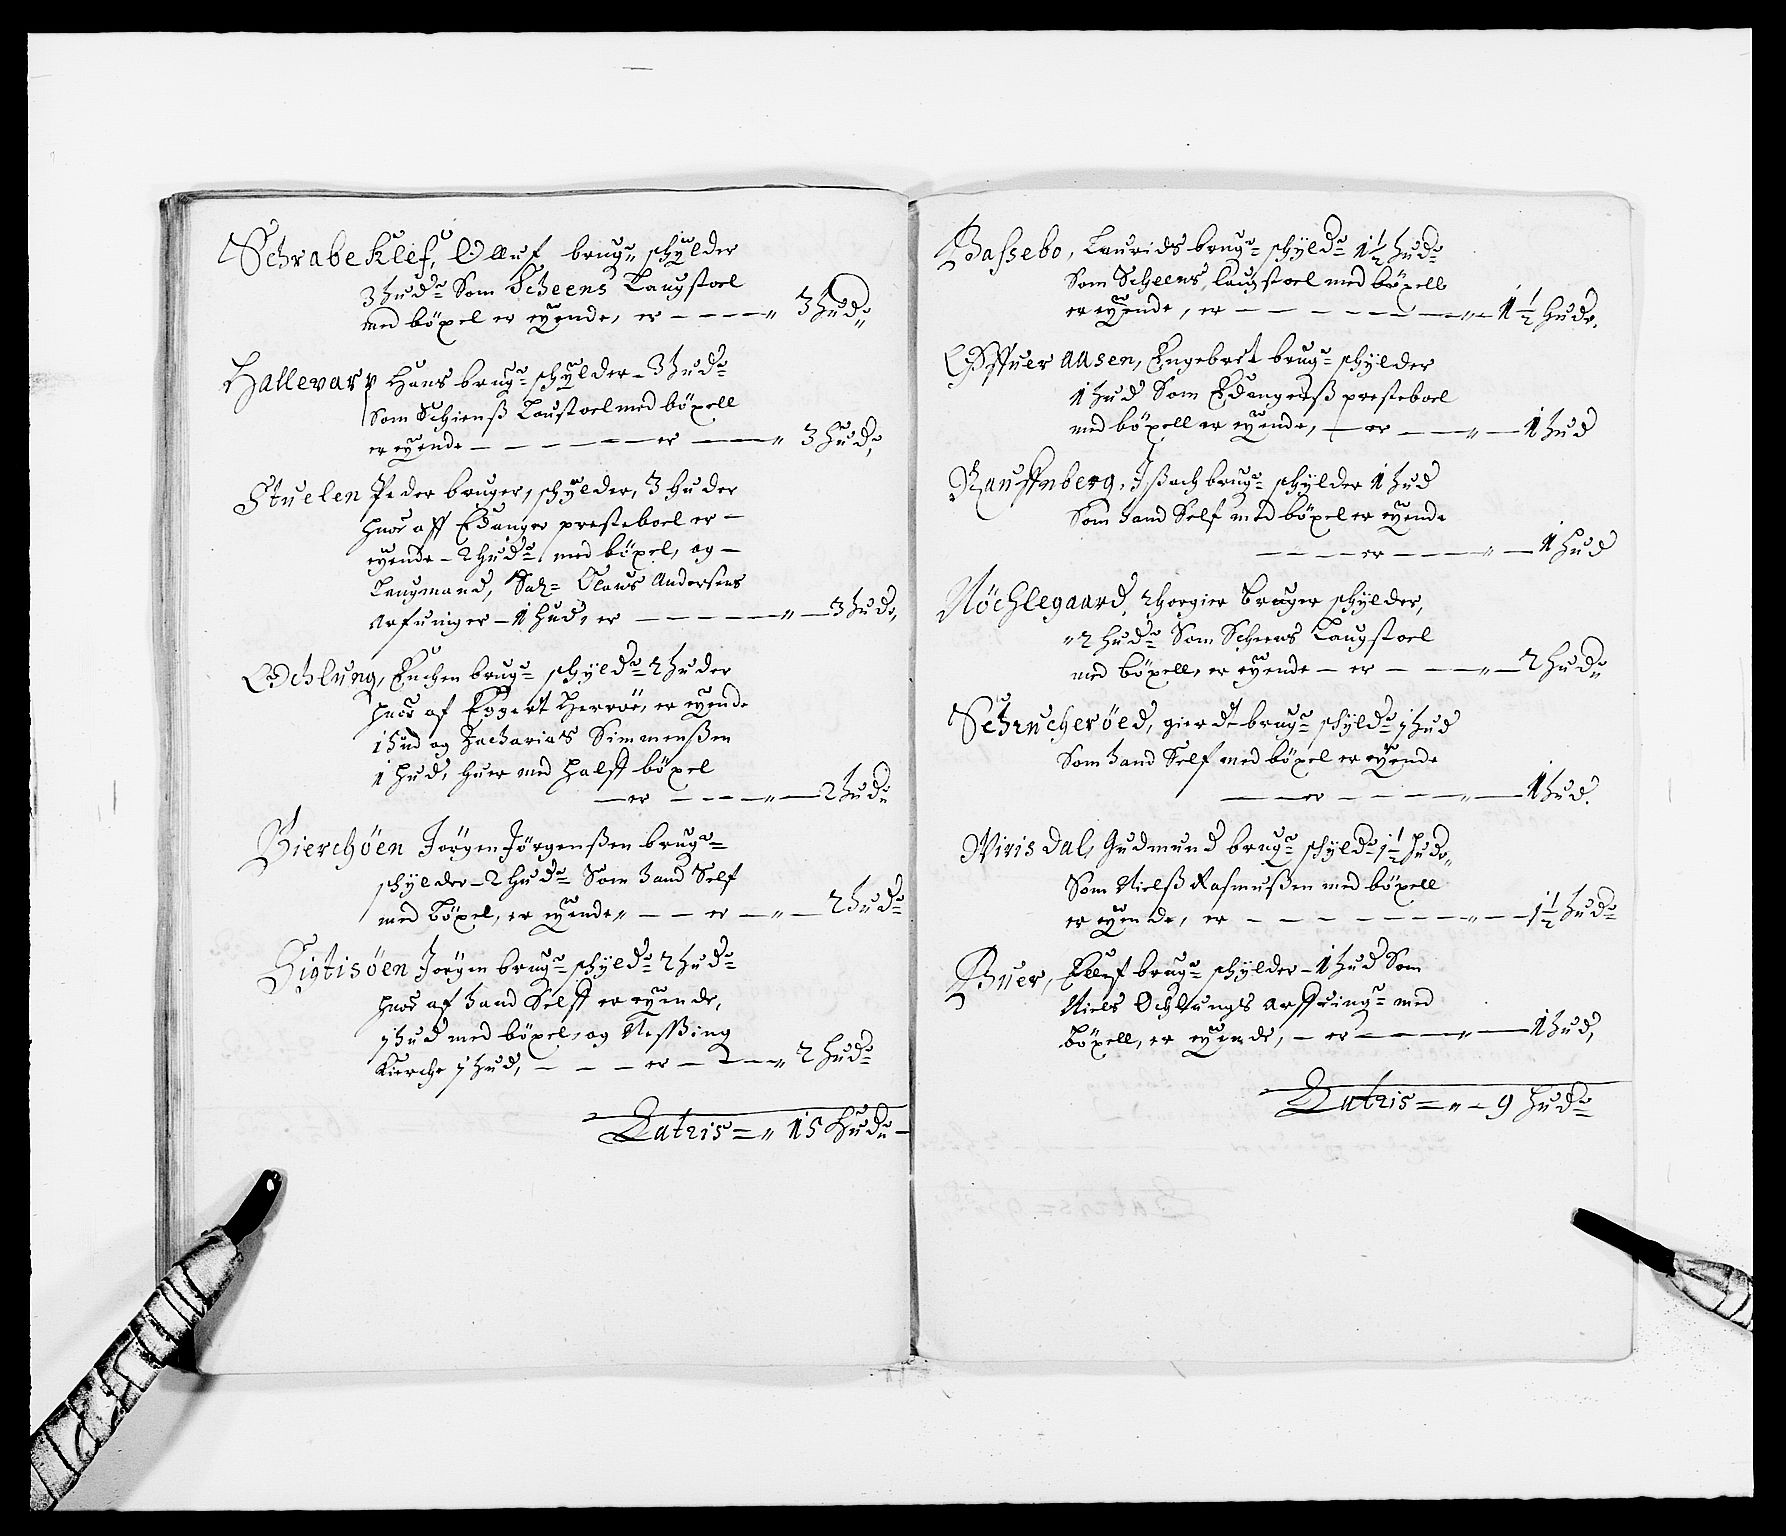 Schrabeklef, Olluf brugr schylder
3 hudr Som Scheens Laugstoel
med böxel er eyende, er — — — — „ 3 hudr
Hallevarp Hans brugr schylder – 3 hudr
Som Schienß Laustoel med böxell
er eyende — — — — — er — — „ 3 hudr
Stuelen Peder bruger, schylder, 3 huder
huor aff Edanger presteboel er —
eyende – 2 hudr med böxel, og —
Laugmand, Sal= Claus Andersens
Arfuinger – 1 hud, er — — — — — „ — 3 hudr,
Ochlung, brugr schyldr 2 huder
huor af Eggert er eyende
1 hud og Zacharias Simmenßen
1 hud, huer med halff böxel
— er — — — „ — 2 hudr
Bierchöen Jörgen Jörgenßen brugr
schylder – 2 hudr Som hand Self
med böxel, er eyende „ — — er — „ — 2 hudr
Sigtisöen Jörgen brugr schyldr 2 hudr
huor af hand Selff er eyende,
1 hud med böxel, og Neßing
Kierche 1 hud, — — — er — — „ 2 hudr
Latris = „ 15 hudr —
Baßebo, Laurids brugr schyldr 1½ hudr
Som Scheens, laugstoel med böxell
er eyende, er — — — — — — „ — 1½ hudr.
Offuer aasen, Engebret brugr schylder
1 hud Som Edangerß presteboel
med böxell er eyende, — er — — „ — 1 hud
Rauffnberg, Ißach brugr schylder 1 hud
Som hand Self med böxel er eyende
— — — er — — — „ — 1 hud
Nöchlegaard, Thorgier bruger schylder,
„ 2 hudr Som Scheens Laugstoel
med böxell, er eyende — er — — — „ — 2 hudr
Schrucheröed, gierdt brugr schyldr 1 hud
Som hand Self med böxel er eyende
— — er — — — — „ — 1 hud.
Viris dal, Gudmund brugr schyldr 1½ hudr,
Som Nielß Rasmußen med böxell
er eyende, er — — — — — — — „ — 1½ hudr
Buer, Elluf brugr schylder – 1 hud Som
Niels Ochlungs arffuingr med
böxell, er eyende, — er — — — „ — 1 hud,
Latris = „ – 9 hudr